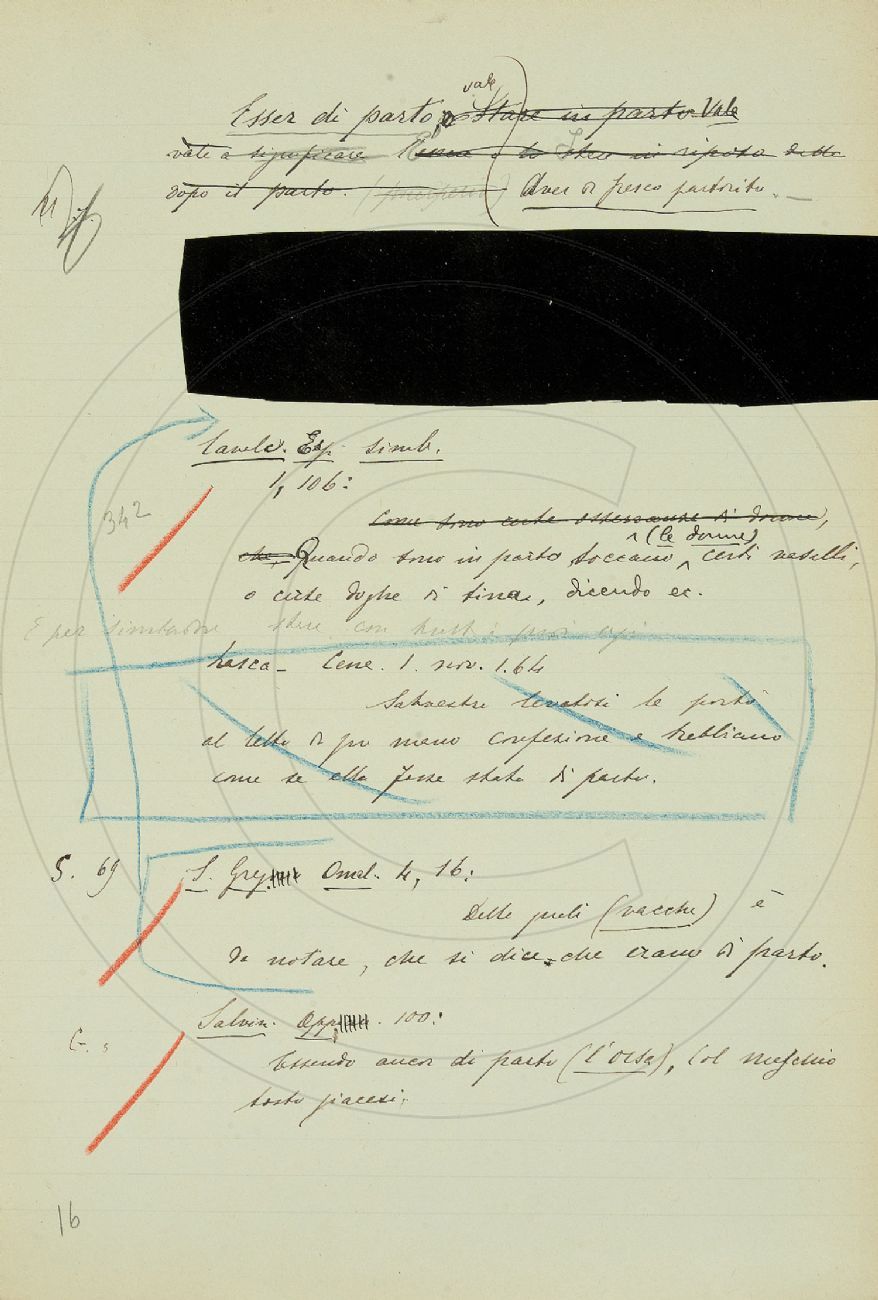 vale
Esser di parto, o Stare in parto Vale
vale a significare lo stare in riposo delle
dopo il parto. Aver di fresco partorito. —
Cavalc. Esp. simb.
1, 106:
342
Come sono certe osservanze di donne,
(le donne)
che, Quando sono in parto toccano certi vaselli,
o certe doghe di tina, dicendo ec.
E per similitudine stare con tutti i suoi agi
Lasca – Cene. 1. nov. 1.64
Salvestro levatosi le portò
al letto di sua mano confezione e trebbiano
come se ella fosse stata di parto.
S. 69
S. Greg. Omel. 4, 16:
Delle quali (vacche) è
da notare, che si dice che erano di parto.
Salvin. Opp. 100:
G.
Essendo ancor di parto (l'orsa), col maschio
tosto giacesi.
16